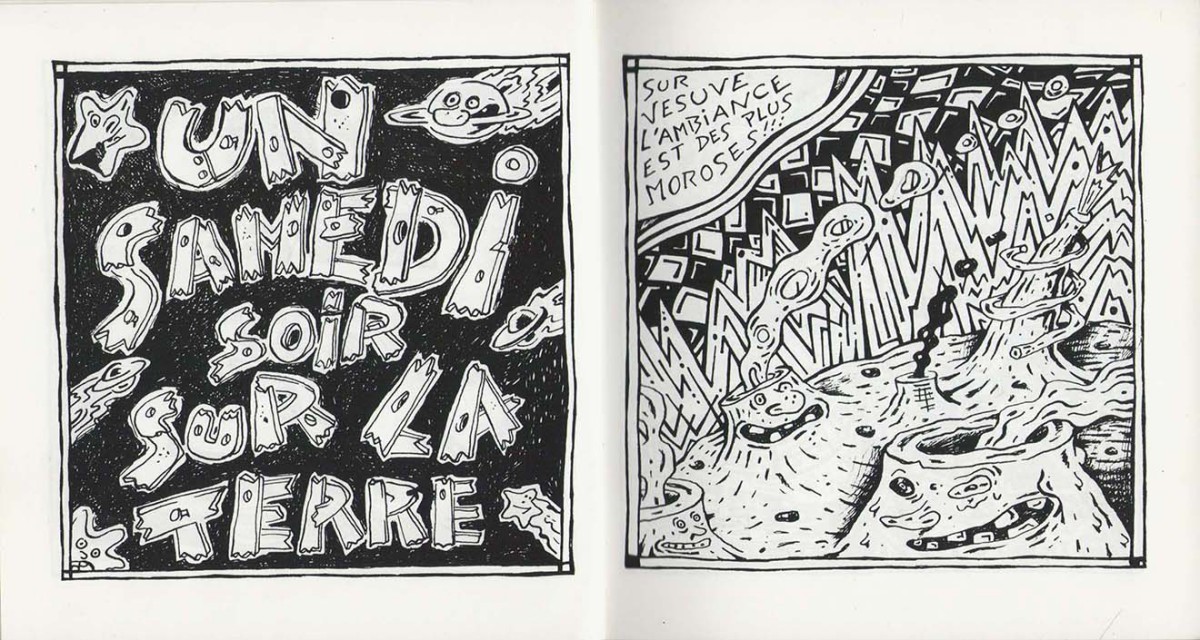 UN
SAMEDI
SOIR
SUR LA
TERRE
SUR
VESUVE
L'AMBIANCE
EST DES PLUS
MOROSES!!!